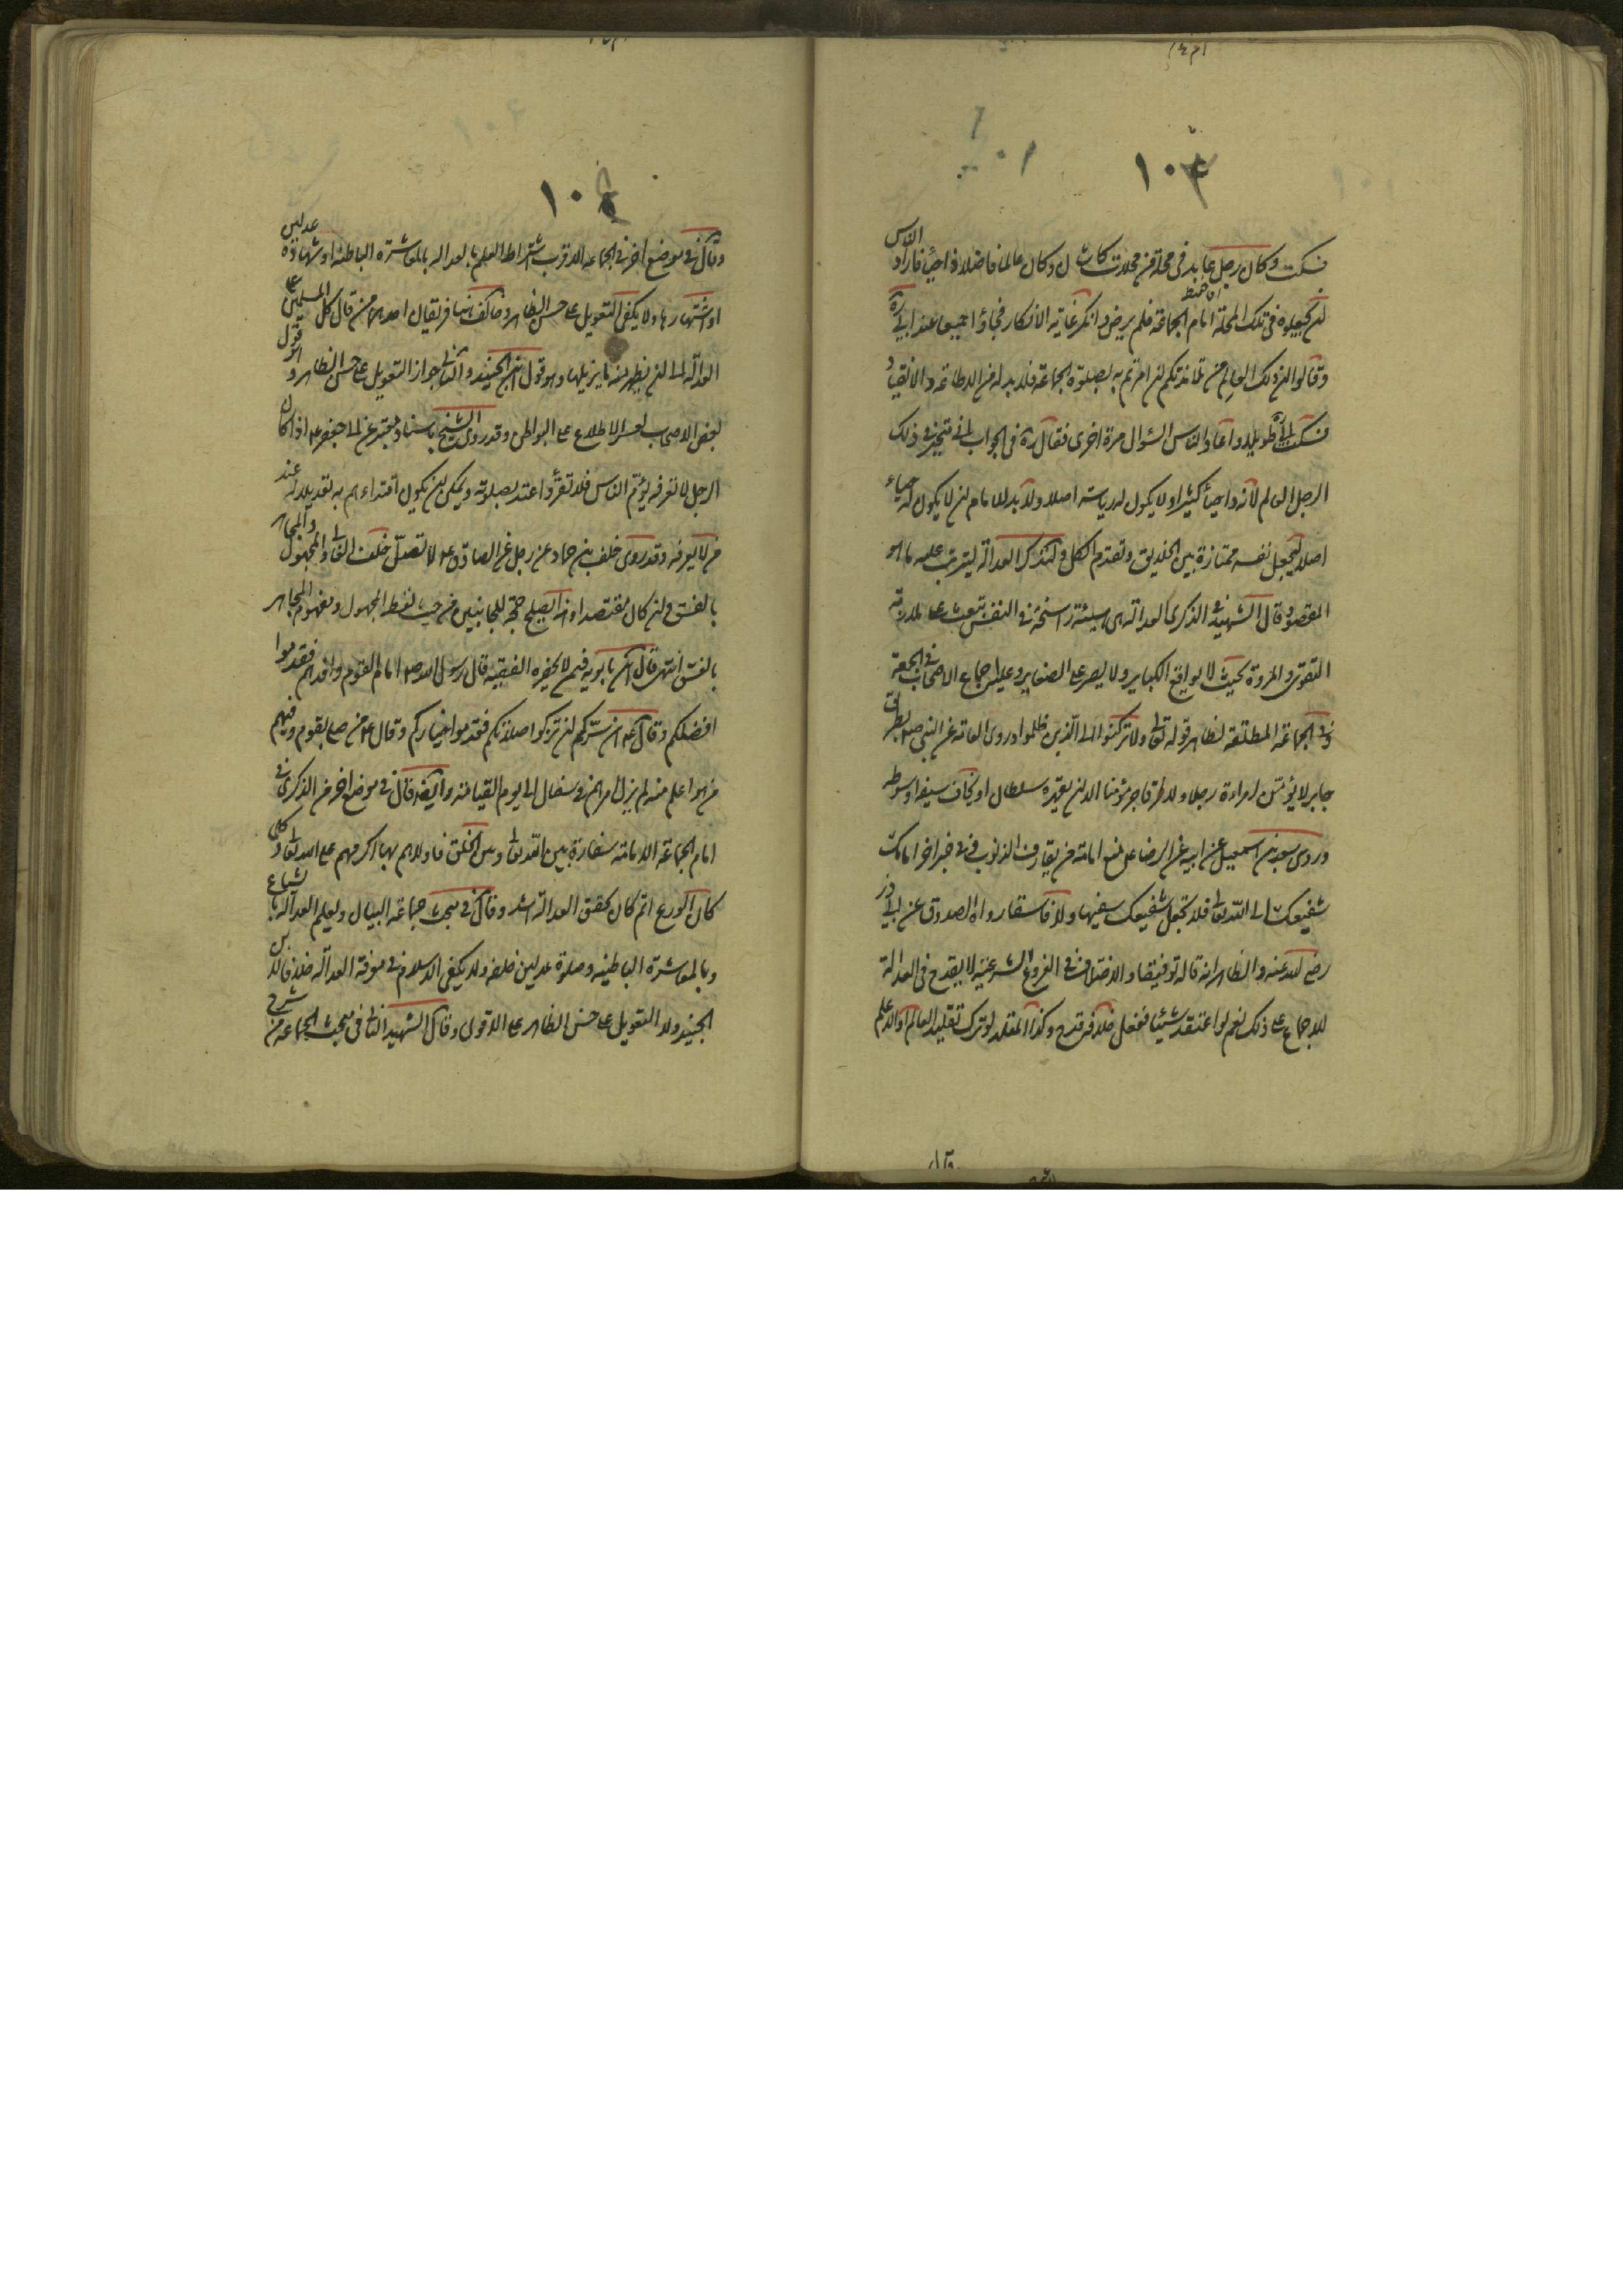 ١٠٣
فسكت وكان رجل عابد فى محلة من محلات كاشان وكان عالما فاضلا ذا حياء فاراد الناس
لن يجعلوه فى تلك المحلة امام الجماعة فلم يرض وانكر غاية الانكار فجاؤا جميعا عند
وقالوا ان ذلك العالم من تلامذتكم لن امرتم به بصلوة الجماعة فلا بد له من الاطاعة والانقياد
فسكت طويلا واعاد الناس السؤال مرة اخرى فقال ره فى الجواب انى متحير فى ذلك
الرجل العالم لانه ذا حياء كثيرا ولا يكون له رياسة اصلا ولا بد للامام لن لا يكون له حياء
اصلا ليجعل نفسه ممتازة بين الخلايق وتقدم الكل ولنذكر العدالة ليترتب عليه ما هو
المقصود قال الشهيد فى الذكرى العدالة هى هيئة راسخة فى النفس تبعث على ملازمة
التقوى والمروة بحيث لا يواقع الكباير ولا يصر على الصغاير وعليه اجماع الاصحاب فى الجمعة
وفى الجماعة المطلقة لظاهر قوله تعالى ولا تركنوا الى الذين ظلموا وروى العامة عن النبى ص بطريق
جابر لا يؤمن امراة رجلا ولا فاجر مؤمنا الا لن يقهره سلطان او يخاف سيفه او سوطه
وروى سعد بن اسمعيل عن ابيه عن الرضا ع منع امامة من يقارف الذنوب وفى خبر اخر امامك
شفيعك الى الله تعالى فلا تجعل شفيعك سفيها ولا فاسقا رواه الصدوق عن ابى ذر
رضى الله عنه والظاهر انه قاله توقيفا والاختلاف فى الفروع الشرعية لا يقدح فى العدالة
للاجماع على ذلك نعم لو اعتقد شيئا ففعل خلافه قدح وكذا المقلد لو ترك تقليد العالم او الاعلم
١٠٤
وقال فى موضع اخر فى الجماعة الاقرب اشتراط العلم بالعدالة بالمعاشرة الباطنة او شهادة عدلين
او اشتهارها ولا يكفى التعويل على حسن الظاهر وخالف هنا فريقان احدهما من قال كل المسلمين على
العدالة الى لن يظهر منه ما يزيلها وهو قول ابن الجنيد والثانى جواز التعويل على حسن الظاهر وهو قول
بعض الاصحاب لعسر الاطلاع على البواطن وقد روى الشيخ باسناد معتبر عن ابى جعفر ع اذا كان
الرجل لا تعرفه يؤم الناس فلا تقرء واعتد بصلوته ويمكن لن يكون اقتداءهم به تعديلا له عند
من لا يعرفه وقد روى خلف بن حماد عن رجل عن الصادق ع لا تصل خلف الغالى والمجهول والمجاهر
بالفسق ولن كان مقتصدا وهذا يصلح حجة للجانبين من حيث لفظ المجهول ومفهوم المجاهر
بالفسق انتهى قال ابن بابويه فيمن لا يحضره الفقيه قال رسول الله ص امام القوم وافدهم فقدموا
افضلكم وقال ع ان سركم لن تزكوا صلاتكم فقدموا خياركم وقال ع من صلى بقوم وفيهم
من هو اعلم منه لم يزل امرهم فى سفال الى يوم القيامة وايضا قال فى موضع اخر من الذكرى فى
امام الجماعة الامامة سفارة بين الله تعالى وبين الخلق فاولاهم بها اكرمهم على الله تعالى وكلما
كان الورع اتم كان تحقق العدالة اشد وقال فى مبحث جماعة البيان ويعلم العدالة بالشياع
وبالمعاشرة الباطنية وصلوة عدلين خلفه ولا يكفى الاسلام فى معرفة العدالة خلافا لابن
الجنيد ولا التعويل على حسن الظاهر على الاقوى وقال الشهيد الثانى فى مبحث الجماعة من شرح